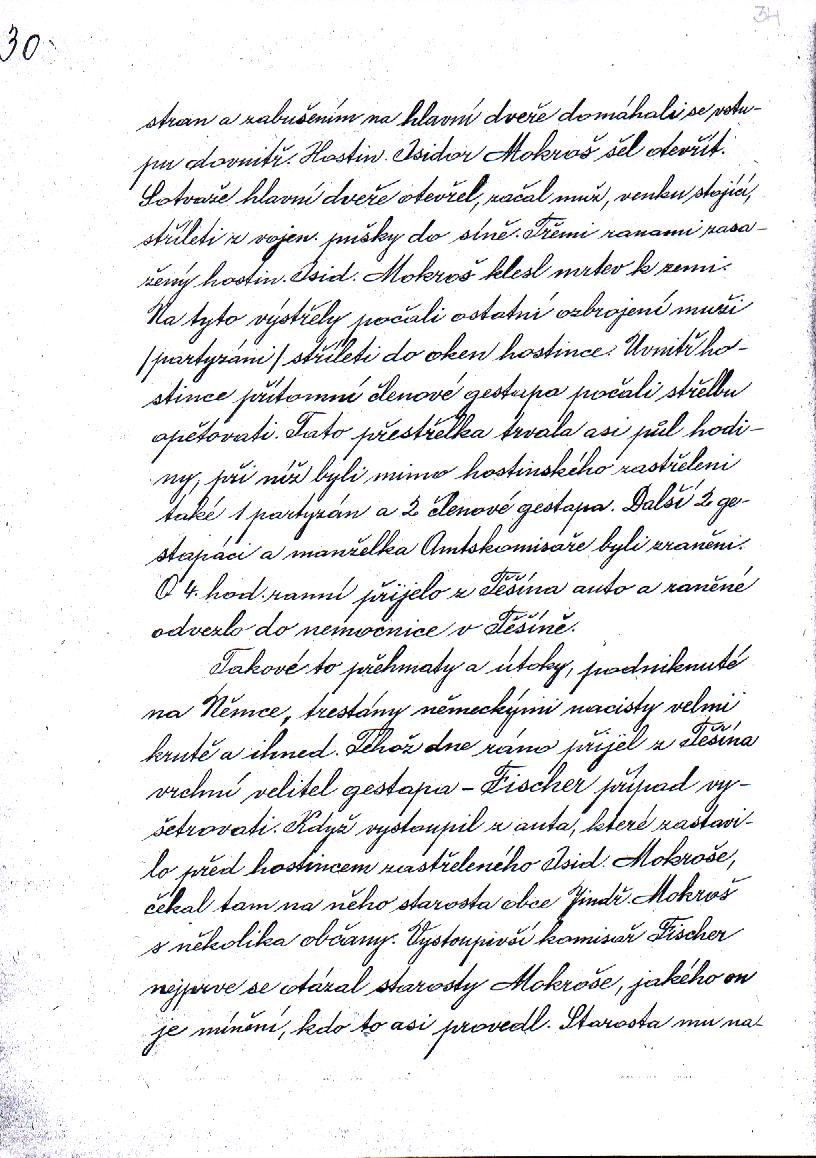 34
30
stran a zabušením na hlavní dveře domáhali se vstu-
pu dovnitř. Hostin. Isidor Mokroš šel otevřít.
Sotvaže hlavní dveře otevřel, začal muž, venku stojící,
stříleti z vojen. pušky do síně. Třemi ranami zasa-
žený hostin. Isid. Mokroš klesl mrtev k zemi.
Na tyto výstřely počali ostatní ozbrojení muži
/partyzáni/ stříleti do oken hostince. Uvnitř ho-
stince přítomní členové gestapa počali střelbu
opětovati. Tato přestřelka trvala asi půl hodi-
ny, při níž byli mimo hostinského zastřeleni
také 1 partyzán a 2 členové gestapa. Další 2 ge-
stapáci a manželka Amtskomisaře byli zraněni.
O 4. hod. ranní přijelo z Těšína auto a raněné
odvezlo do nemocnice v Těšíně.
Takové to přehmaty a útoky, podniknuté
na Němce, trestány německými nacisty velmi
krutě a ihned. Téhož dne ráno přijel z Těšína
vrchní velitel gestapa - Fischer případ vy-
šetrovati. Když vystoupil z auta, které zastavi-
lo před hostincem zastřeleného Isid. Mokroše,
čekal tam na něho starosta obce Jindř. Mokroš
s několika občany. Vystoupivší komisař Fischer
nejprve se otázal starosty Mokroše, jakého on
je mínění, kdo to asi provedl. Starosta mu na-